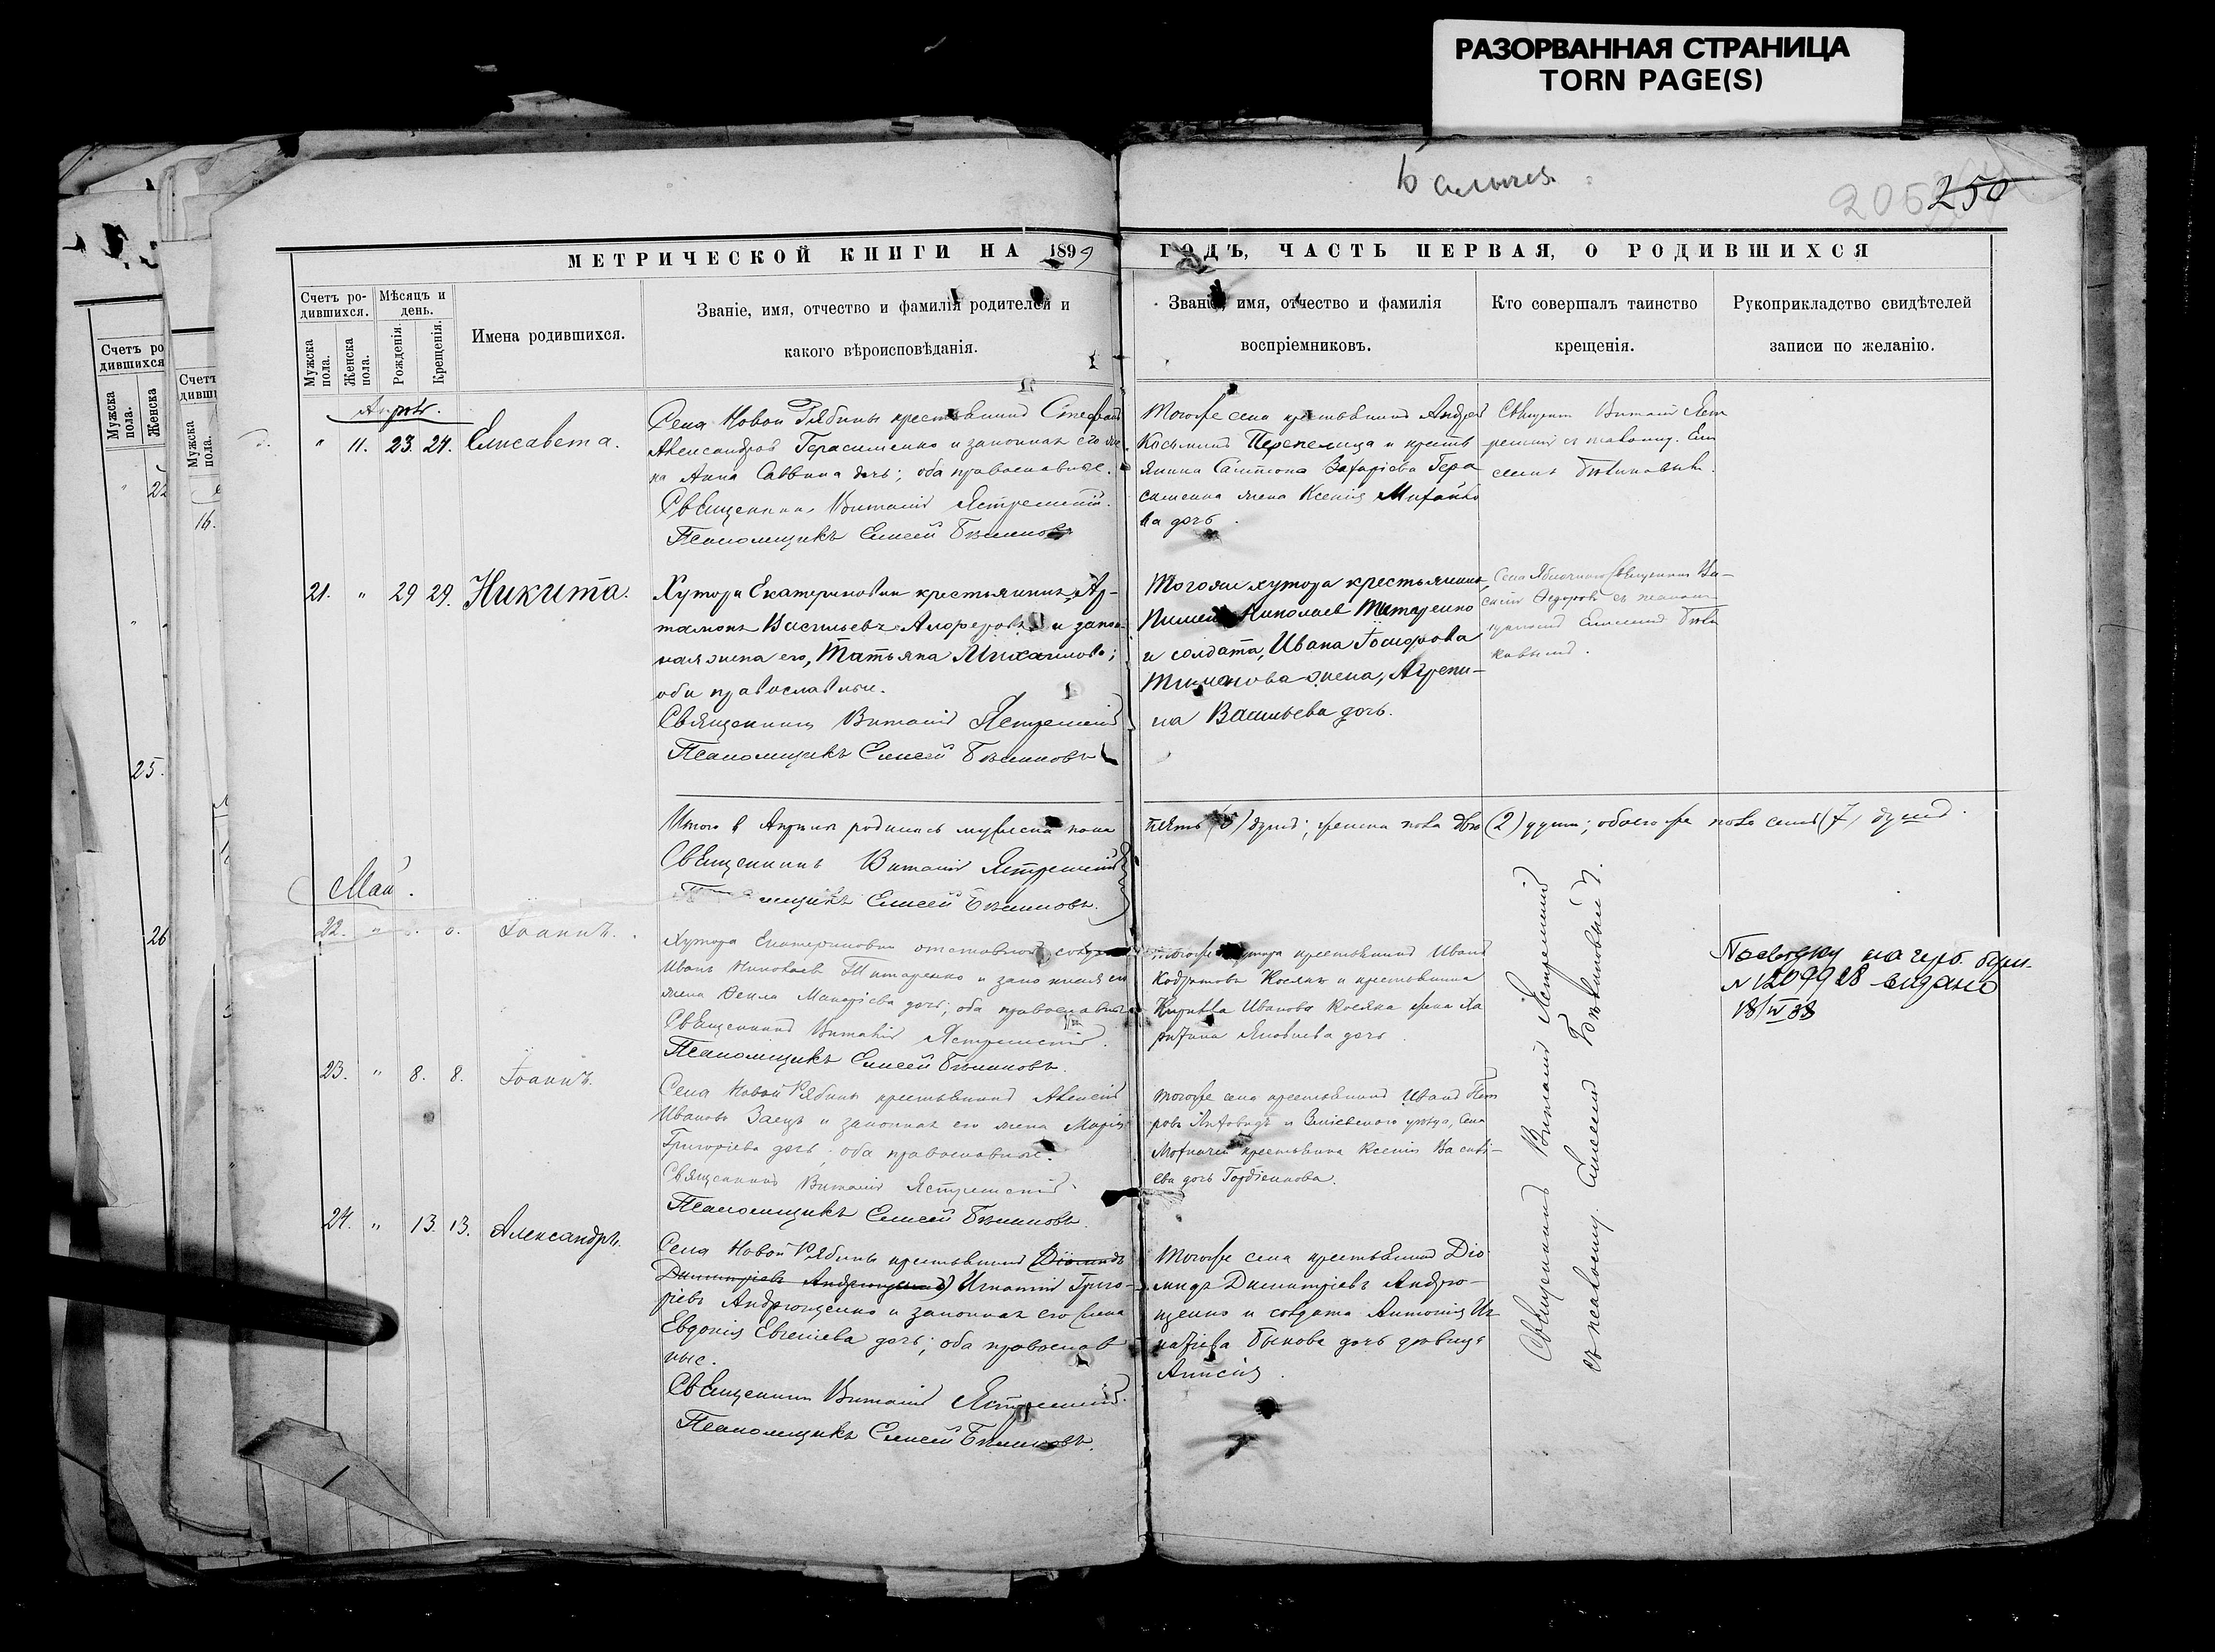 РАЗОРВАННАЯ СТРАНИЦА
TORN PAGE(S)
250
МЕТРИЧЕСКОЙ КНИГИ НА 1899 ГОДЪ, ЧАСТЬ ПЕРВАЯ, О РОДИВШИХСЯ
Счетъ ро-
дившихся.
Мужска
пола.
Женска
пола.
Мѣсяцъ и
день.
Рожденія.
Крещенія.
Имена родившихся.
Званіе, имя, отчество и фамилія родителей и
какого вѣроисповѣданія.
Званіе, имя, отчество и фамилія
воспріемниковъ.
Кто совершалъ таинство
крещенія.
Рукоприкладство свидѣтелей
записи по желанію.
" 11. 23. 24. Елисавета.
Села Новой Рябины крестьянинъ Стефанъ
Александровъ Герасименко и законная его же
на Анна Саввина дочь; оба православные.
Священникъ Виталій Ястремскій.
Псаломщикъ Елисей
Тогоже села крестьянинъ Андрей
Косьминъ Перепелица и кресть
янина Захаріева Гера
сименка жена Ксенія Михайло
ва дочь.
Священникъ Виталій Яст
ремскій съ псаломщ. Ели
сеемъ
21. " 29 29. Никита.
Хутора Екатериновки крестьянинъ, Ар-
тамонъ Васильевъ и закон-
ная жена его, Татьяна Михаилова;
оба православные.
Священникъ Виталій Ястремскій
Псаломщикъ Елисей
Тогоже хутора крестьянинъ
Пименъ Николаевъ Титаренко
и солдата, Ивана
жена, Агрепи-
на Васильева дочь.
Села Священникъ
Федоровъ съ псалом-
щикомъ Елисеемъ
Итого въ Апрѣлѣ родилось мужеска пола пять (5) душъ; женска пола двѣ (2) души; обоего же пола семь (7) душъ.
Священникъ Виталій Ястремскій
Псаломщикъ Елисей
Май.
22. " Іоаннъ.
Хутора Екатериновки отставной солдатъ
Иванъ Николаевъ Титаренко и законная его
жена Векла Макаріева дочь; оба православные
Священникъ Виталій Ястремскій.
Псаломщикъ Елисей
Тогоже хутора крестьянинъ Иванъ
Кодратовъ Косякъ и крестьянина
Кирилла Иванова Косяка жена Ха
ритина Яковлева дочь.
23. " 8. 8. Іоаннъ.
Села Новой Рябины крестьянинъ Алексій
Ивановъ Заецъ и законная его жена Марія
Григоріева дочь; оба православные.
Священникъ Виталій Ястремскій.
Псаломщикъ Елисей
Тогоже села крестьянинъ Иванъ Пет
ровъ и уѣзда, села
крестьянина Ксенія Василь-
ева дочь Гордіенкова.
24. " 13. 13. Александръ.
Села Новой Рябины крестьянинъ Діомидъ
Димитріевъ Андрющенко Игнатій Григо-
ріевъ Андрющенко и законная его жена
Евдокія Евгеніева дочь; оба православ
ные.
Священникъ Виталій Ястремскій.
Псаломщикъ Елисей
Тогоже села крестьянинъ Діо
мидъ Димитріевъ Андрю-
щенко и солдата Антонія Иг
натіева Быкова дочь дѣвица
Анисія.
Священникъ Виталій Ястремскій
съ псаломщ. Елисеемъ
на герб. бум.
№ 1209928 выдано
18/IV 38
25.
26
16.